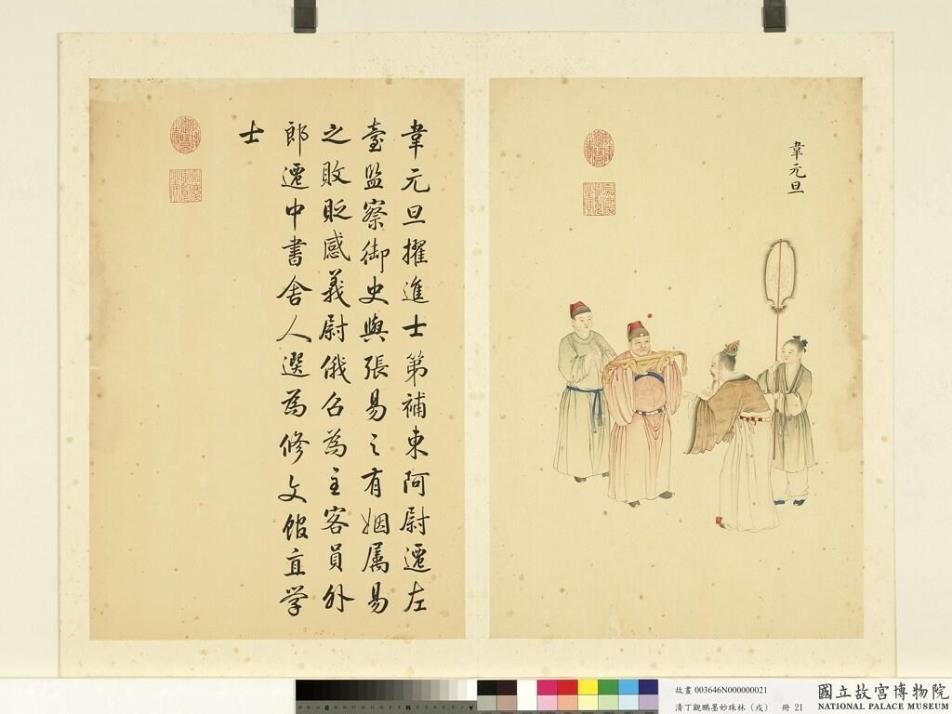 韋元旦
韋元旦擢進士第補東阿尉遷左
臺監察御史與張易之有姻属易
之敗貶感義尉俄召為主客員外
郎遷中書舍人選為修文館直学
士
故畫 003646N000000021
清丁觀鵬墨妙珠林（戌） 冊 21
國立故宮博物院
NATIONAL PALACE MUSEUM